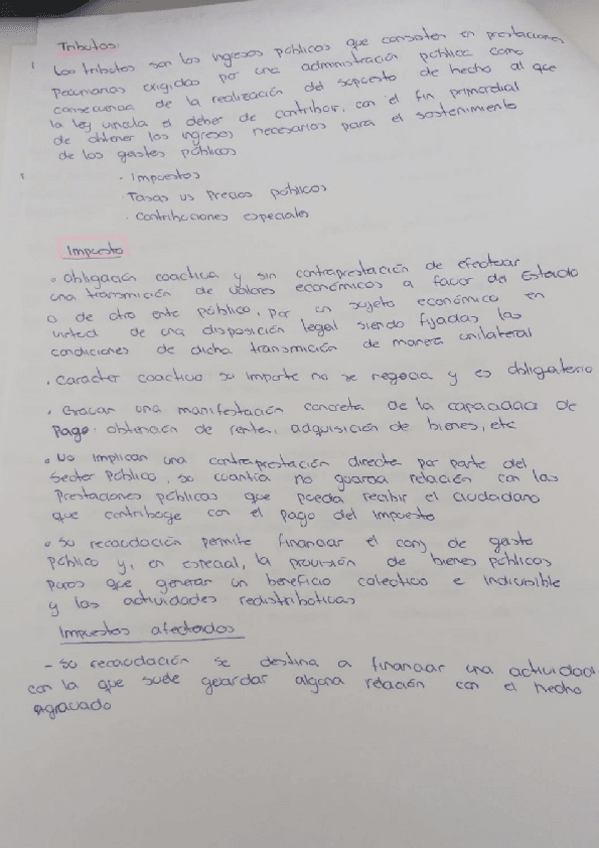 Tributos:
Los tributos son los ingresos públicos que consisten en prestaciones
pecuniarias exigidas por una administración pública como
consecuencia de la realización del supuesto de hecho al que
la ley vincula el deber de contribuir, con el fin primordial
de obtener los ingresos necesarios para el sostenimiento
de los gastos públicos
· Impuestos
Tasas vs Precios públicos
· Contribuciones especiales
Impuesto
• Obligación coactiva y sin contraprestación de efectuar
una transmición de valores económicos a favor del Estado
o de otro ente público, por un sujeto económico en
virtud de una disposición legal siendo fijadas las
condiciones de dicha transmición de manera unilateral
• Carácter coactivo su importe no se negocia y es obligatorio
• Gravar una manifestación concreta de la capacidad de
pago: obtención de renta, adquisición de bienes, etc
• No implican una contraprestación directa por parte del
Sector Público, su cuantía no guarda relación con las
prestaciones públicas que pueda recibir el ciudadano
que contribuye con el pago del impuesto
• Su recaudación permite financiar el conj de gasto
público y, en especial, la provisión de bienes públicos
puros que generar un beneficio colectivo e indivisible
y las actividades redistributivas
Impuestos afectados
- Su recaudación se destina a financiar una actividad
con la que suele guardar alguna relación con el hecho
agravado